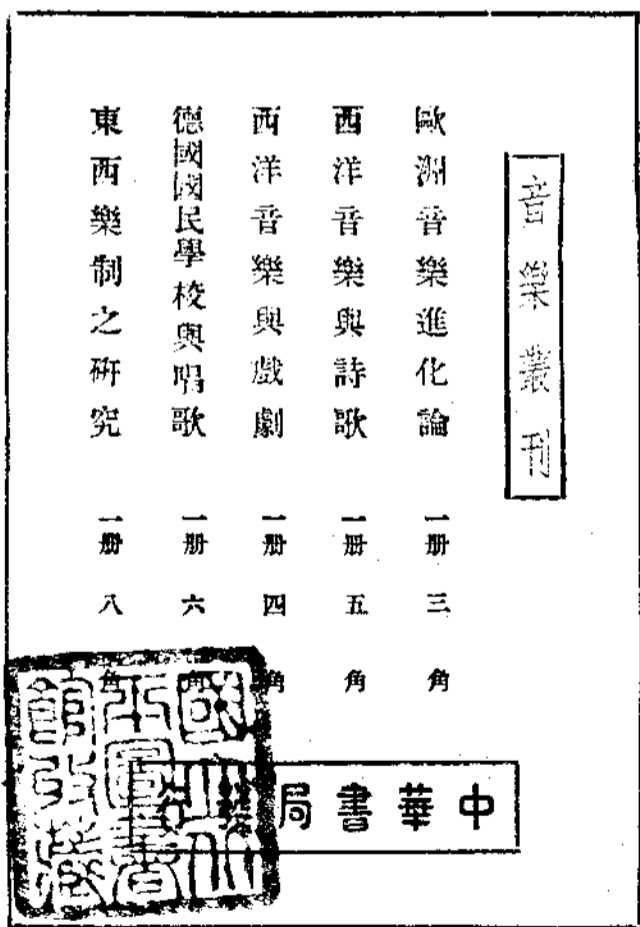 音樂叢刊
歐洲音樂進化論 一册 三角
西洋音樂與詩歌 一册 五角
西洋音樂與戲劇 一册 四角
德國國民學校與唱歌 一册 六角
東西樂制之研究 一册 八角
中華書局
國立北平圖書館收藏